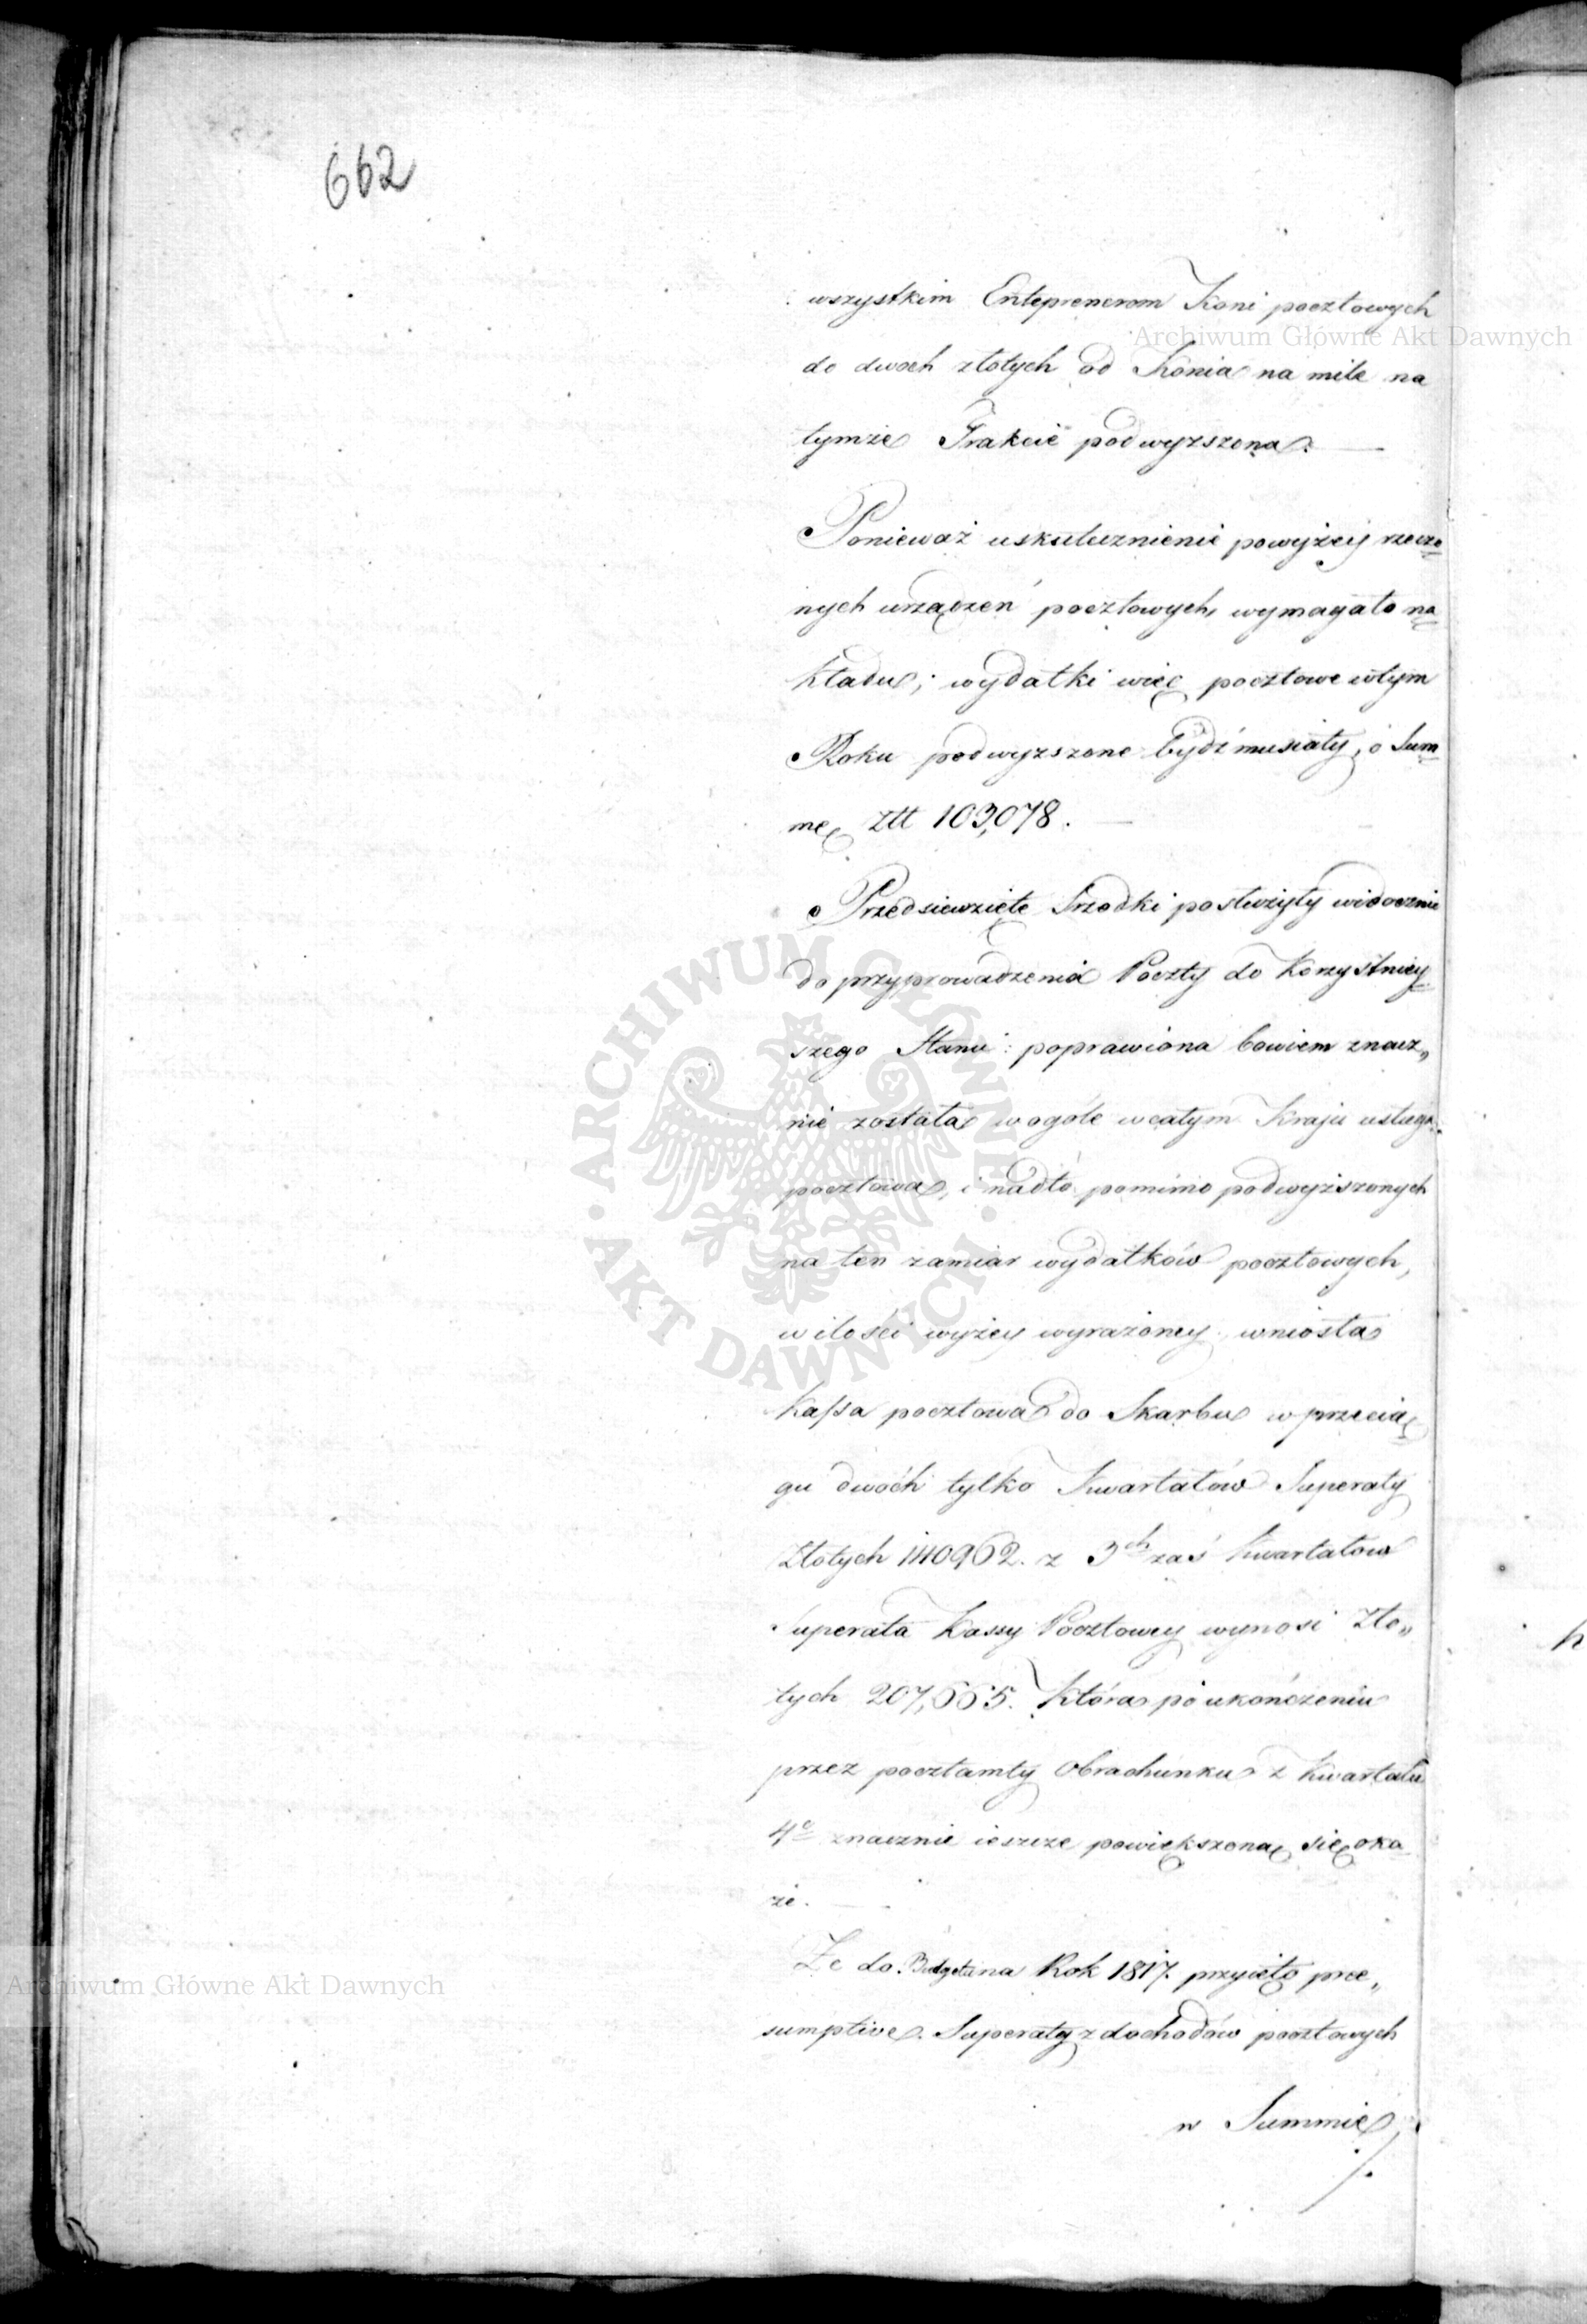 662
wszystkim Enteprenerom Koni pocztowych
do dwoch złotych od Konia na mile na
tymże Trakcie podwyzszona.
Ponieważ uskutecznienie powyżey rzeczo
nych urządzeń pocztowych, wymagało na
kładu; wydatki więc pocztowe wtym
Roku podwyzszone bydź musiały, o Sum
mę Złł 103,078.
Przedsiewzięte Srzodki posłużyły widocznie
do przyprowadzenia Poczty do Korzystniey
szego Stanu: poprawiona bowiem znacz„
nie została wogóle wcałym Kraju usługa
pocztowa, i nadto pomimo podwyższonych
na ten zamiar wydatków pocztowych,
w ilości wyżey wyrażoney, wniosła
Kassa pocztowa do Skarbu w przecią
gu dwóch tylko Kwartałów Superaty
Złotych 140962. z 3ch zaś Kwartałow
Superata Kassy Pocztowey wynosi Zło„
tych 207,665. Która po ukończeniu
przez pocztamty Obrachunku z Kwartału
4o znacznie ieszcze powiększoną się oka
że.
Że do Budgetu na Rok 1817. przyięto prae„
sumptive. Superaty z dochodów pocztowych
w Summie
Archiwum Główne Akt Dawnych
Archiwum Główne Akt Dawnych
ARCHIWUM GŁÓWNE
AKT DAWNYCH